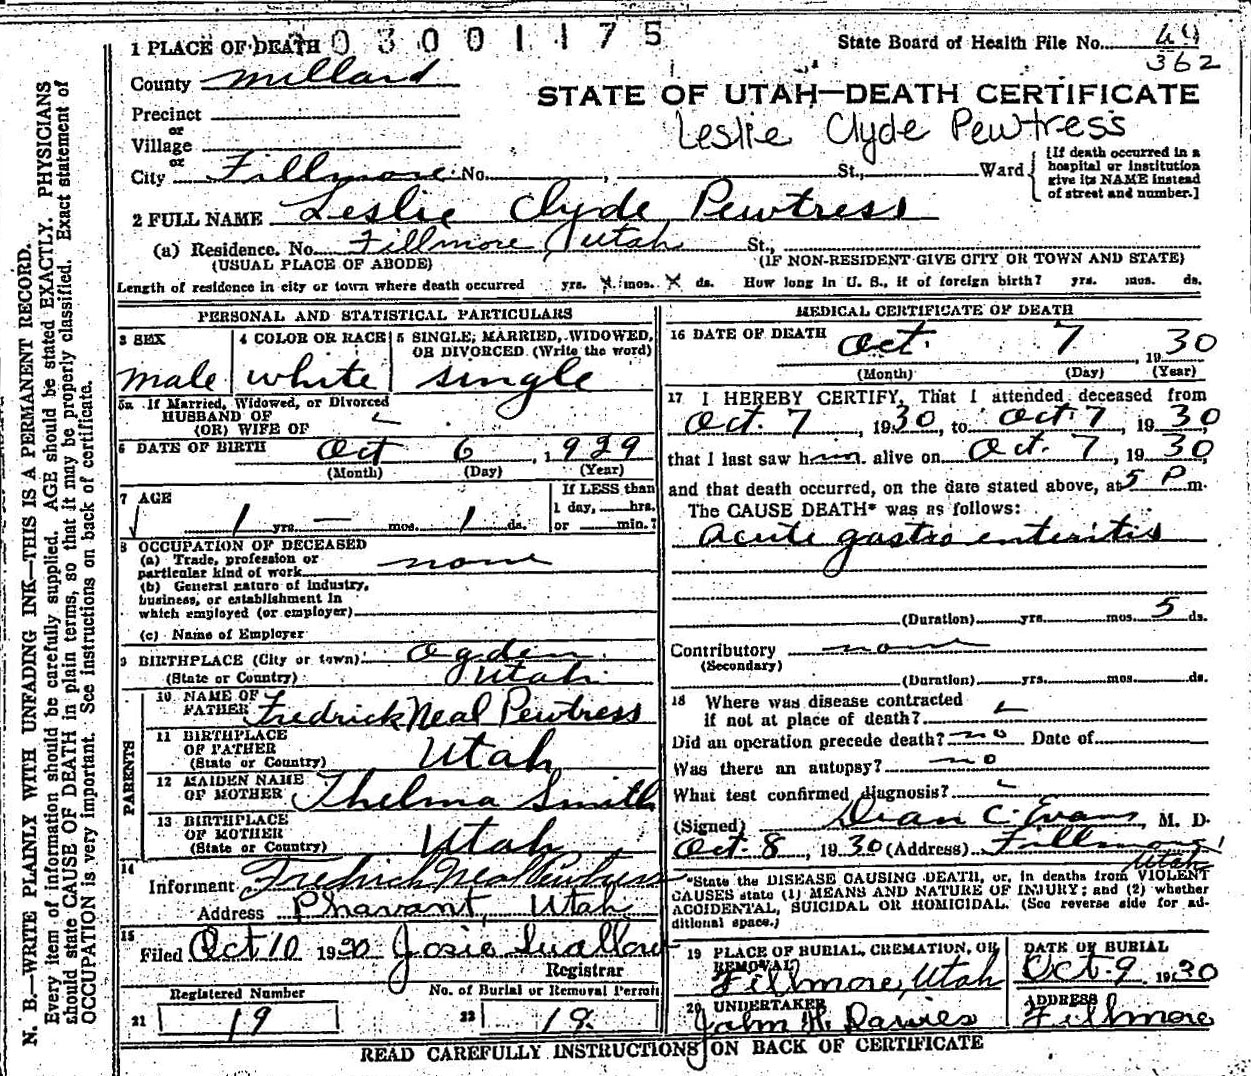 3 0 0 1 1 7 5
1 PLACE OF DEATH
State Board of Health File No. 49
362
County Millard
STATE OF UTAH—DEATH CERTIFICATE
Leslie Clyde Pewtress
Precinct
or
Village
or
City Fillmore No. , St., Ward
[If death occurred in a hospital or institution give its NAME instead of street and number.]
2 FULL NAME Leslie Clyde Pewtress
(a) Residence. No. Fillmore, Utah St.,
(USUAL PLACE OF ABODE) (IF NON-RESIDENT GIVE CITY OR TOWN AND STATE)
Length of residence in city or town where death occurred yrs. 4 mos. X ds. How long in U. S., if of foreign birth? yrs. mos. ds.
PERSONAL AND STATISTICAL PARTICULARS
3 SEX
male
4 COLOR OR RACE
white
5 SINGLE, MARRIED, WIDOWED, OR DIVORCED (Write the word)
single
5a If Married, Widowed, or Divorced
HUSBAND OF
(OR) WIFE OF
6 DATE OF BIRTH Oct 6, 1929
(Month) (Day) (Year)
7 AGE
1 yrs. — mos. 1 ds.
If LESS than
1 day, hrs.
or min.?
8 OCCUPATION OF DECEASED
(a) Trade, profession or
particular kind of work none
(b) General nature of industry,
business, or establishment in
which employed (or employer)
(c) Name of Employer
9 BIRTHPLACE (City or town) Ogden
(State or Country) Utah
PARENTS
10 NAME OF
FATHER Fredrick Neal Pewtress
11 BIRTHPLACE
OF FATHER
(State or Country) Utah
12 MAIDEN NAME
OF MOTHER Thelma Smith
13 BIRTHPLACE
OF MOTHER
(State or Country) Utah
14
Informent Fredrick Neal Pewtress
Address Phavant, Utah
15
Filed Oct 10 1930 Josie
Registrar
Registered Number
21 19
No. of Burial or Removal Permit
22 19
MEDICAL CERTIFICATE OF DEATH
16 DATE OF DEATH Oct. 7, 1930
(Month) (Day) (Year)
17 I HEREBY CERTIFY, That I attended deceased from
Oct. 7, 1930, to Oct. 7, 1930,
that I last saw him alive on Oct. 7, 1930,
and that death occurred, on the date stated above, at 5 P m.
The CAUSE DEATH* was as follows:
Acute gastro enteritis
(Duration) yrs. mos 5 ds.
Contributory none
(Secondary)
(Duration) yrs. mos. ds.
18 Where was disease contracted
if not at place of death?
Did an operation precede death? no Date of
Was there an autopsy? no
What test confirmed diagnosis?
(Signed) Dean C. Evans, M. D.
Oct. 8, 1930 (Address) Fillmore
Utah
*State the DISEASE CAUSING DEATH, or, in deaths from VIOLENT
CAUSES state (1) MEANS AND NATURE OF INJURY; and (2) whether
ACCIDENTAL, SUICIDAL OR HOMICIDAL. (See reverse side for ad-
ditional space.)
19 PLACE OF BURIAL, CREMATION, OR
REMOVAL
Fillmore, Utah
DATE OF BURIAL
Oct. 9 1930
20 UNDERTAKER
John H. Davies
ADDRESS
Fillmore
READ CAREFULLY INSTRUCTIONS ON BACK OF CERTIFICATE
N. B.—WRITE PLAINLY WITH UNFADING INK—THIS IS A PERMANENT RECORD.
Every item of information should be carefully supplied. AGE should be stated EXACTLY. PHYSICIANS
should state CAUSE OF DEATH in plain terms, so that it may be properly classified. Exact statement of
OCCUPATION is very important. See instructions on back of certificate.